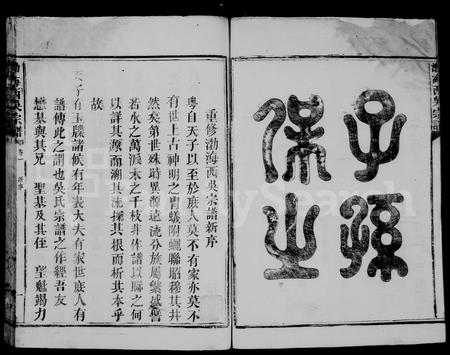 渤海西吳宗譜
子孫
保之
重修渤海西吳宗譜新序
粤自天子以至於庶人莫不有家亦莫不
有世上古神明之胄蟻附蟬聯昭穆其井
然矣第世殊時異源遠流分族屬繁盛譬
若水之萬派木之千枝非作譜以聯之何
以詳其源而溯其流探其根而析其本乎
故
天子有玉牒諸侯有年表大夫有家世庶人有
譜傳此之謂也吳氏宗譜之作經吾友
懋基與其兄 聖基及其侄 望魁竭力
渤海西吳宗譜 卷一 新序
FamilySearch